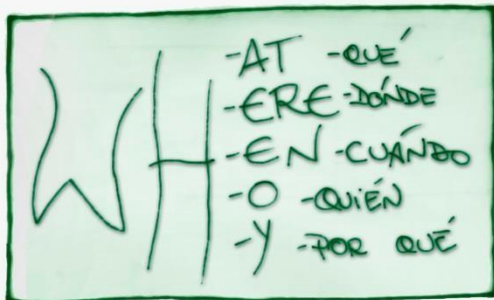 WH
-AT -QUÉ
-ERE-DÓNDE
-EN-CUÁNDO
-O -QUIÉN
-Y -POR QUÉ